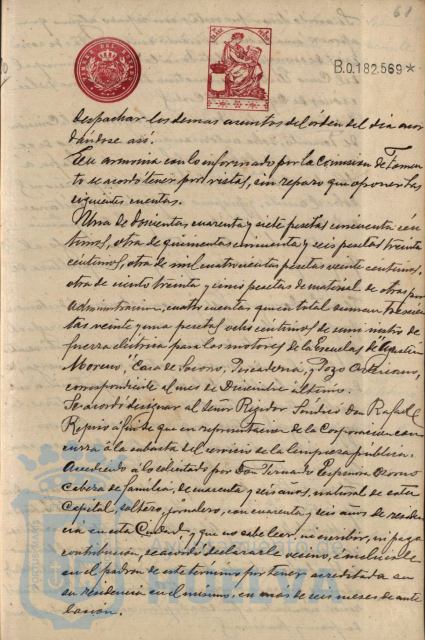 61
B.0.182.569*
despachar los demas asuntos del órden del dia acor
dándose así.
En armonia con lo informado por la Comision de Fomen
to se acordó tener por vistas, sin reparo que oponer las
siguientes cuentas.
Una de doscientas cuarenta y siete pesetas cincuenta cén
timos, otra de quinientas cincuenta y seis pesetas treinta
céntimos, otra de mil cuatrocientas pesetas veinte céntimos,
otra de ciento treinta y cinco pesetas de material de obras por
administracion, cuatro cuentas que en total suman trescien
tas veinte y una pesetas céntimos de suministro de
fuerza eléctrica para los motores de la Escuelas de "Agustin
Moreno", Casa de Socorro, Pescaderia, y Pozo Artesiano,
correspondiente al mes de Diciembre último.
Se acordó designar al Señor Regidor Síndico Don Rafael
á fin de que en representacion de la Corporacion con
curra á la subasta del servicio de la limpieza pública.
Accediendo á lo solicitado por Don Fernando Espinosa
Cabeza de familia, de cuarenta y seis años, natural de esta
Capital, soltero, jornalero, con cuarenta y seis años de residen
cia en esta Ciudad, y que no sabe leer, ni escribir, ni paga
contribucion, se acordó declararle vecino, é incluirle
en el padron de este término por tener acreditada
su residencia en el mismo, en mas de seis meses de ante
lacion.